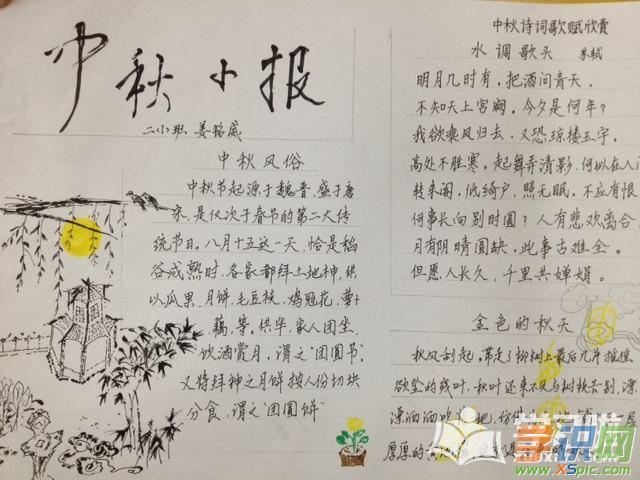 中秋小报
二小班 姜铭威
中秋风俗
中秋节起源于魏晋,盛于唐
宋,是仅次于春节的第二大传
统节日。八月十五这一天,恰是稻
谷成熟时,各家都拜土地神,供
以瓜果,月饼,毛豆枝,鸡冠花,萝卜
藕,等。供毕,家人团坐,
饮酒赏月,谓之"团圆节"
又将拜神之月饼按人份切块
分食,谓之"团圆饼"
中秋诗词歌赋欣赏
水调歌头 苏轼
明月几时有,把酒问青天,
不知天上宫阙,今夕是何年?
我欲乘风归去,又恐琼楼玉宇,
高处不胜寒。起舞弄清影,何似在人间
转朱阁,低绮户,照无眠,不应有恨
何事长向别时圆?人有悲欢离合,
月有阴晴圆缺,此事古难全。
但愿人长久,千里共婵娟。
金色的秋天
秋风刮起,带走了柳树上最后几片摇摇
欲坠的残叶,秋叶还来不及与树枝告别,漂
漂洒洒
厚厚的
学识网
www.XSpic.com